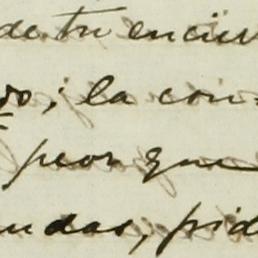 de tu encier
os; la con-
peor que
udas, pid